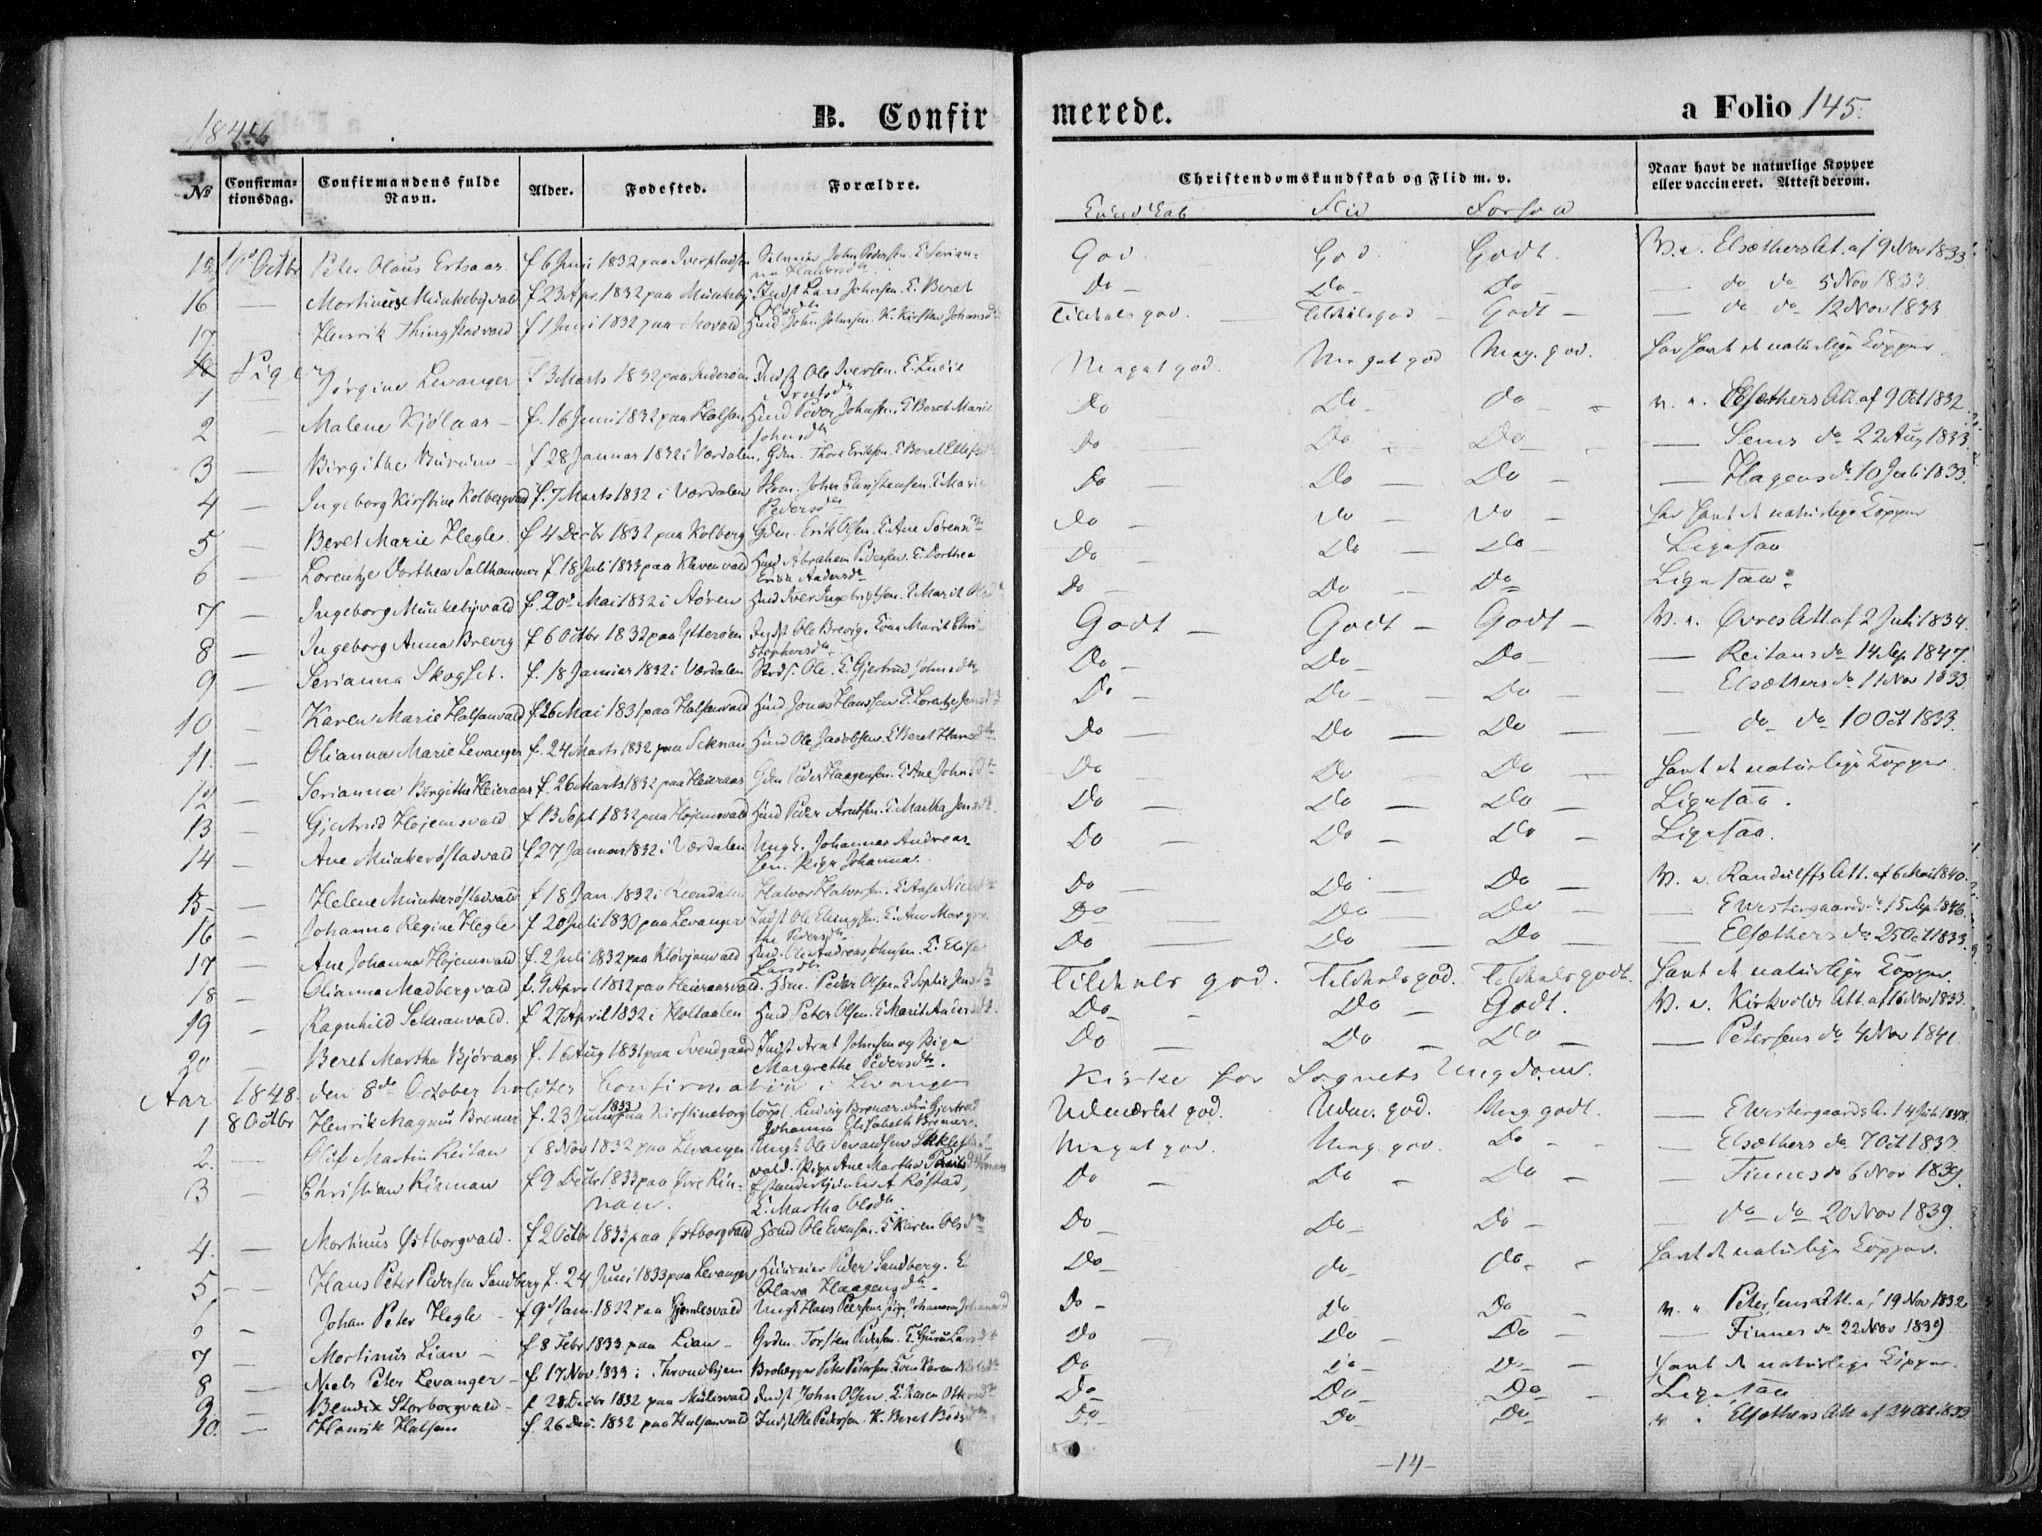 1846
B. Confir merede. a Folio 145.
No Confirma-tionsdag. Confirmandens fulde Navn. Alder. Fødested. Forældre. Christendomskundskab og Flid m. v. Naar havt de naturlige Kopper eller vaccineret. Attest derom.
Kundskab Flid Forhold
15 1ste Octbr Peter Olaus Ertsaas. f 6 Juni 1832 paa God God. Godt. V. a. Elsæthers At. af 9 Nov 1833
16 — Mortinus Munkebyvald f 23 Apr. 1832 paa Munkeby Indst Lars Johnsen. E. Beret Do — Do — Do — — do do 5 Nov 1833
17. Henrik Thingstadvald f 1 Juni 1832 paa Movald Hmd John Johnsen. K. Kirsten Johansdtr Tildeels god. — Tildeels god — Godt — — do do 12 Nov 1833
Piger
1 Jørgine Levanger f 3 Marts 1832 paa Inderøen Indst Ole Iversen. E. Lucie Arntsdtr Meget god. Meget god Meg. god. har havt de naturlige Kopper
2 — Malene Kjølaas — f. 16 Juni 1832 paa Halsen Hmd Peder Johnsen. E Beret Marie Johnsdtr Do Do — do — V. a. Elsæthers Att. af 9 Oct 1832.
3 — Birgithe — f 28 Januar 1832 i Værdalen, Gdm. Thore Eriksen. E Beret Do — Do — Do — — Sems do 22 Aug 1833
4 — Ingeborg Kirstine Kolbergvald f. 7 Marts 1832 i Værdalen John Christensen. E Marie Pedersdtr Do — Do — Do — — Hagens do 10 Juli 1833.
5 — Beret Marie Hegle. f 4 Decbr 1832 paa Kolberg Gdm. Erik Olsen. E Ane Sørensdtr Do — Do — Do — har havt de naturlige Kopper
6 — Lorentze Dorthea Salthammer f 18 Juli 1833 paa Hmd Abrahem Pedersen. E. Dorthea Andersdtr Do — Do — Do — Ligesaa
7 — Ingeborg Munkebyvald f. 20de Mai 1832 i Støren Hmd Iver Ingebrigtsen. E Marit Do — Do — Do — Ligesaa.
8 — Ingeborg Anna Brevig f 6 Octbr 1832 paa Ytterøen Indst Ole Brevig. Kone Marit Christophersdtr Godt — Godt — Godt — V. a. Øvres Att af 2 Juli 1834.
9 — Serianna Skogset. f. 18 Januar 1832 i Værdalen Ole. E Gjertrud Johnsdtr Do — Do — Do — — Reitans do 14 Sep 1847.
10 — Karen Marie Halsanvald f 26 Mai 1831 paa Halsanvald Hmd Jonas Hanssen E Lorentze Do — Do — Do — — Elsæthers do 11 Nov 1833
11. — Olianna Marie Levanger f. 24 Marts 1832 paa Hmd Ole Jacobsen. E Beret Hansdtr Do — Do — Do — — do do 10 Oct 1833.
12 — Serianna Birgithe Heieraas f. 26 Marts 1832 paa Heieraas Gdm Peder Haagensen. E Ane Johnsdtr Do — Do — Do — havt de naturlige Kopper
13 — Gjertrud Højemsvald f 13 Sept 1832 paa Højemsvald Hmd Peder Arntsen. E Martha Do — Do — Do — Ligesaa.
14 — Ane Munkerøstadvald f 27 Januar 1832 i Værdalen Ungk. Johannes Andreassen. Pige Johanna. Do — Do — Do — Ligesaa.
15 — Helene Munkerøstadvald f 18 Jan. 1832 i Halvor Halvorsen. E Do — Do — Do — V. a. Randulffs Att. af 6 Mai 1840.
16 — Johanna Regine Hegle f 20 Juli 1830 paa Levanger Indst Ole Ellingsen. E. Ane Margrethe Pedersdtr Do Do — Do — — E Westergaards do 15 Sep 1846
17 — Ane Johanna Højemsvald f. 2 Juli 1832 paa Hmd. Ole Andreas Johnsen. E. Elise Larsdtr Do — Do — Do — — Elsæthers do 25 Oct 1833.
18 — Olianna Madbergvald f. 9 April 1832 paa Heieraasvald. Hsm. Peder Olsen. E Sophie Tildeels god. Tildeels god. Tildeels godt. havt de naturlige Kopper
19 — Ragnhild f 27 April 1832 i Holtaalen Hmd Peter Olsen. E Marit Andersdtr Do — Do — Godt. V. a. Kirkvolds Att. af 16 Nov 1833.
20 — Beret Martha Bjøraas f. 16 Aug 1831 paa Svendgaard Indst Arnt Johnsen og Pige Margrethe Pedersdtr. Do — Do — Do — — Petersens do 4 Nov 1841
Aar 1848. den 8de October holdtes Confirmation i Levanger Kirke for Sognets Ungdom.
1 8 Octbr Henrik Magnus Bremer f. 23 Juni 1833 paa Kirstineborg Ludvig Bremer. Fru Gjertrud Johanna Elisabeth Bremer. Udmærket god. Udm. god. Meg godt. — E Westergaards A. 14 Juli 1848.
2. — Oluf Martin Reitan f 8 Nov 1832 paa Levanger Ungk Ole Sevaldsen Ekkle vald. Pige Ane Martha Meget god. Meg. god. Do — Elsæthers do. 7 Oct 1833
3 — Christian Rinnan f 9 Decbr 1833 paa Øvre Rinnan. Røstad, E. Martha Olsdtr Do — Do — Do — — Finnes do 6 Nov 1839.
4. — Mortinus Østborgvald. f 2 Octbr 1833 paa Østborgvald Hsmd Ole Evensen. E Karen Olsdtr Do — Do — Do — — do do 20 Nov 1839.
5 — Hans Peter Pedersen Sandberg f. 24 Juni 1833 paa Levanger Peder Sandberg. E Olava Haagensdtr. Do — do — do. — havt de naturlige Kopper.
— Johan Peter Hegle — f 9 Jan. 1832 paa Gjemlesvald Ungk Hans Peersen. Pige Johanna Do — Do Do — V. a. Petersens Att. af 19 Nov 1832
7 — Mortinus Lian — f 8 Febr 1833 paa Lian — Grdm. Torsten Pedersen. E Guru Larsdtr Do — Do — Do — — Finnes do 22 Nov 1839
8 — Niels Peter Levanger — f 17 Nov. 1833 i Throndhjem Brolegger Peter Petersen. Kone Karen Do Do — Do — havt de naturlige Kopper.
9 — Bendix Storborgvald — f 28 Decbr 1832 paa Indst John Olsen. E Karen Do — Do — Do — Ligesaa
10. Henrik Halsan f. 26 Dec. 1832 paa Halsanvald Indst Ole Pedersen. K. Beret Do — Do — Do — V. a. Elsæthers Att af 24 Oct 1833.
—14—